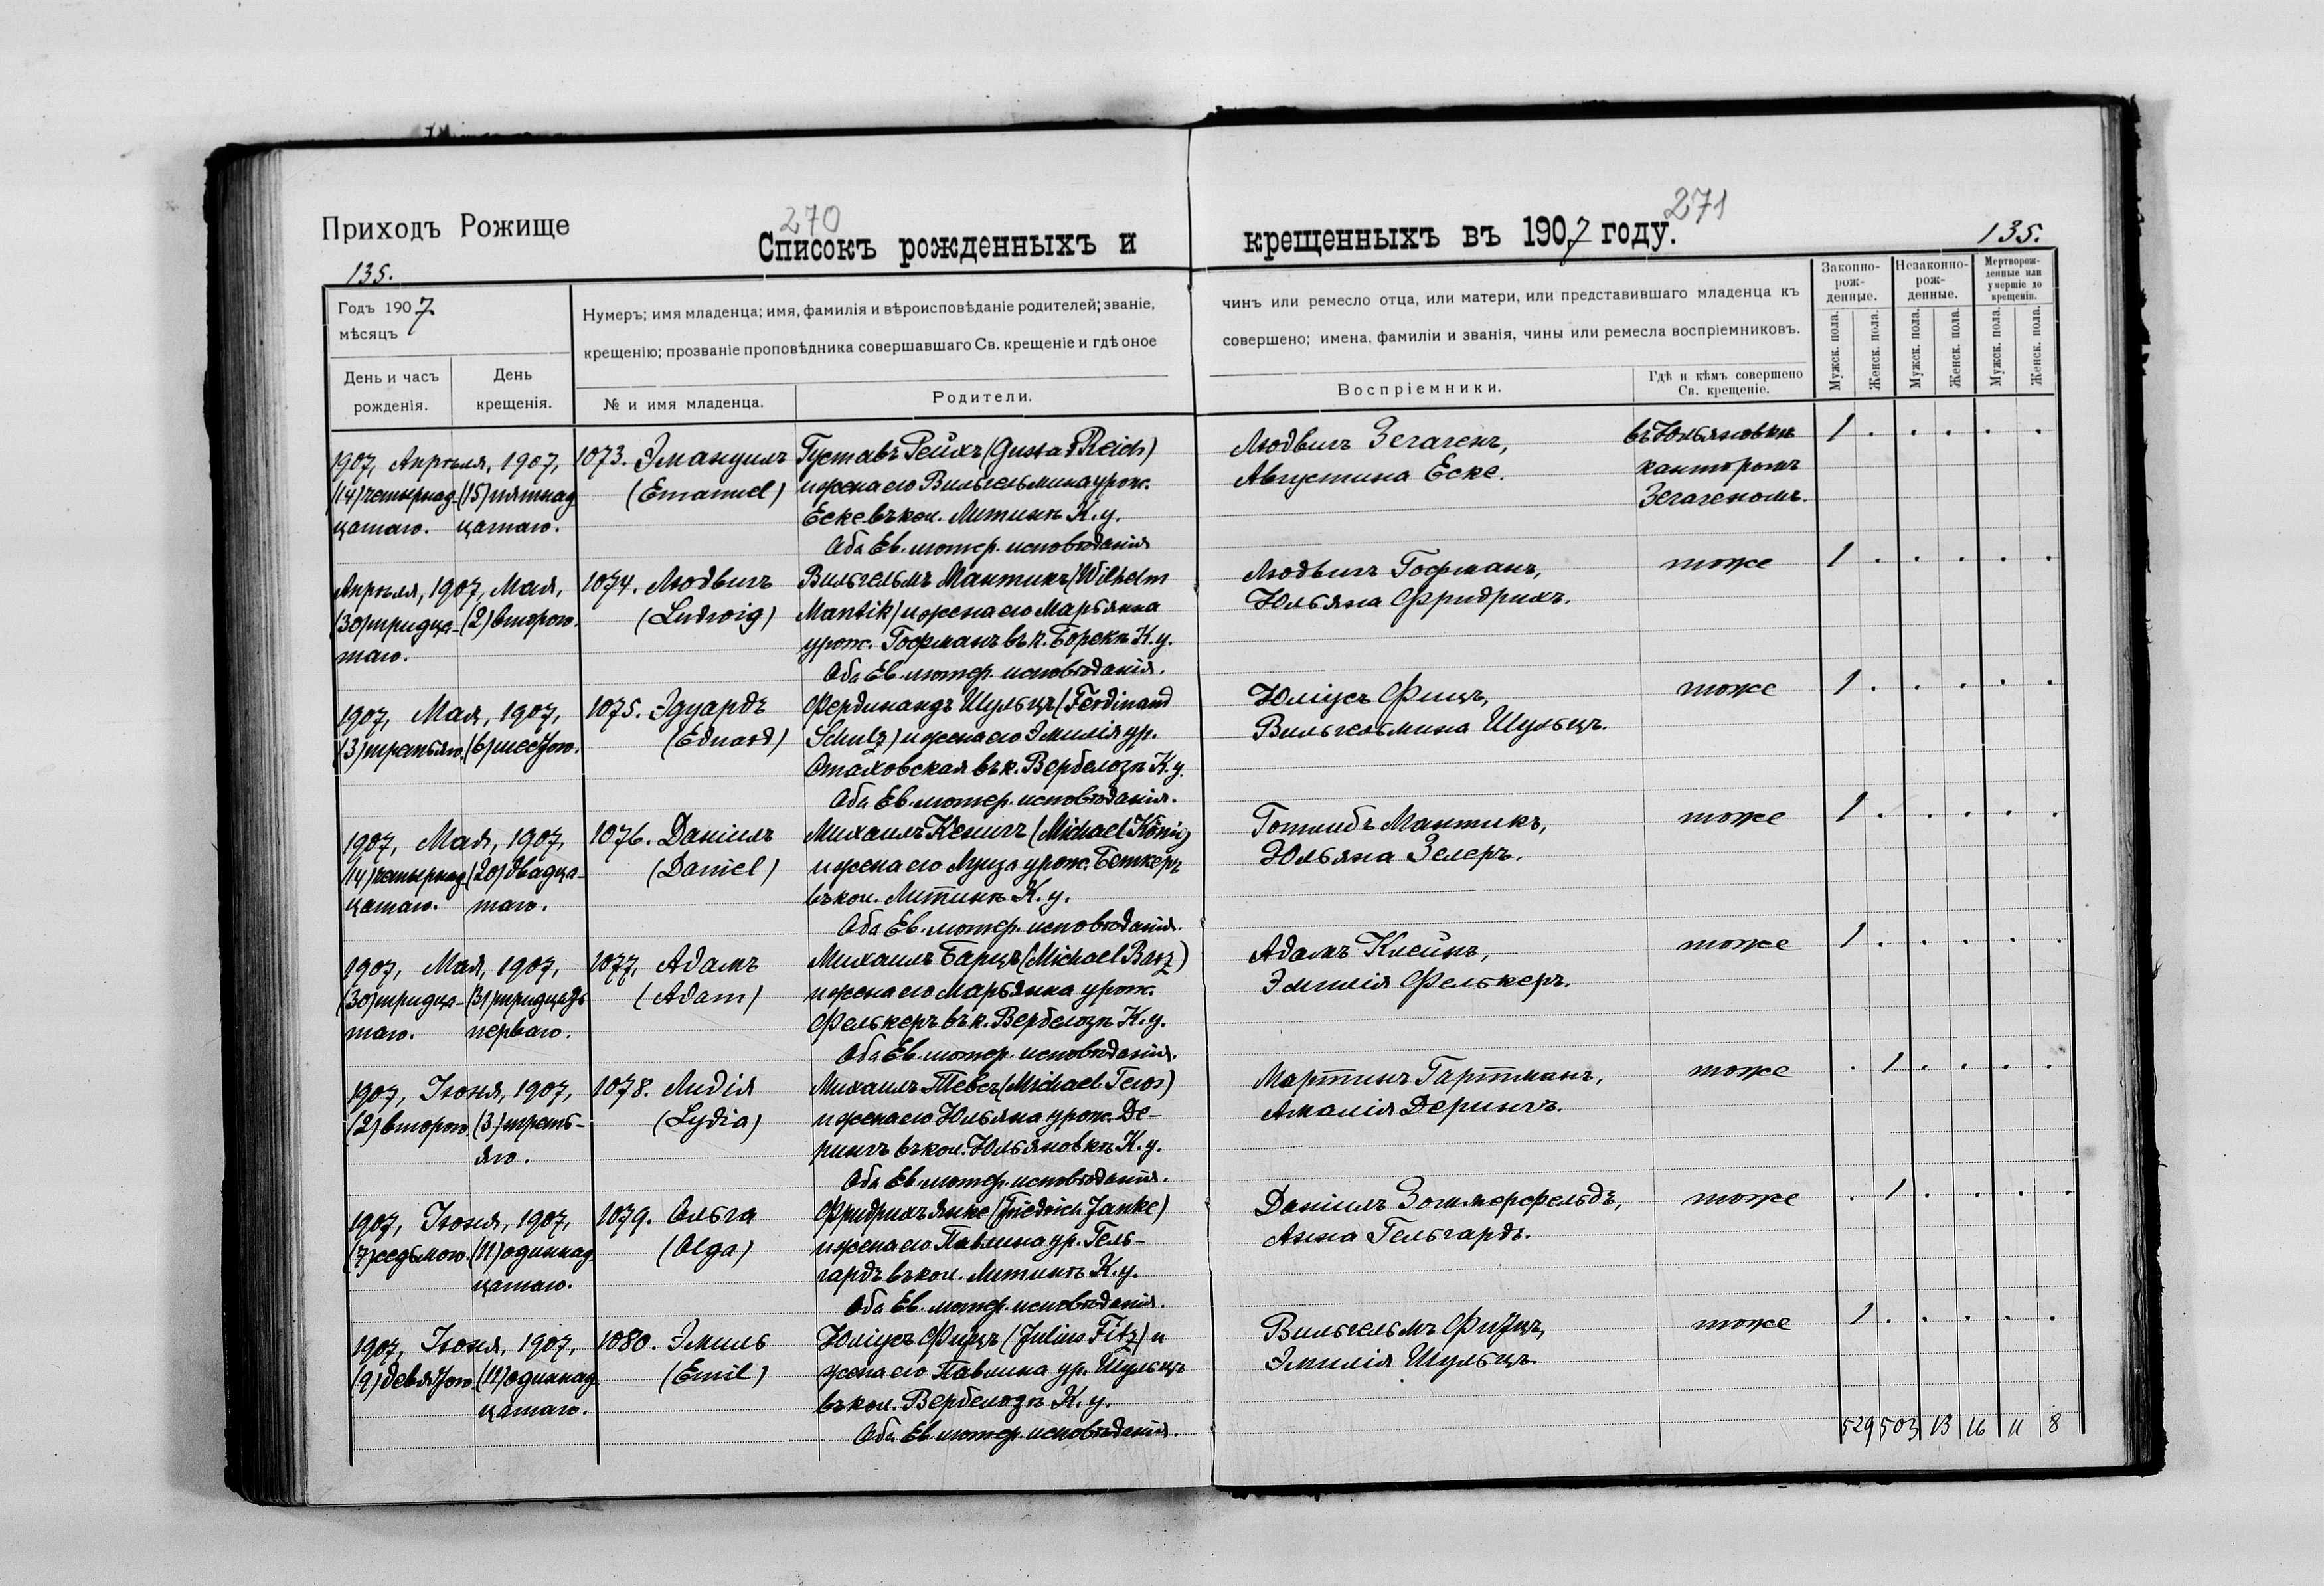 Приходъ Рожище
270
Списокъ рожденныхъ и
135.
Годъ 1907
мѣсяцъ
Нумеръ; имя младенца; имя, фамилія и вѣроисповѣданіе родителей; званіе,
крещенію; прозваніе проповѣдника совершавшаго Св. крещеніе и гдѣ оное
День и часъ рожденія.
День крещенія.
№ и имя младенца.
Родители.
1907, Апрѣля, 1907, 1073. Эмануилъ Густавъ Рейхъ (Gustav Reich)
(14) четырнад- (15) пятнад- (Emanuel) и жена его Вильгельмина урож.
цатаго. цатаго. Еске въ кол. Митинѣ К. у.
Оба Ев. лютер. исповѣданія
Апрѣля, 1907, Мая, 1074. Людвигъ Вильгельмъ Мантикъ (Wilhelm
(30) тридца- (2) второго. (Ludwig) Mantik) и жена его Марьянна
таго. урож. Гофманъ въ к. Борекѣ К. у.
Оба Ев. лютер. исповѣданія.
1907, Мая, 1907, 1075. Эдуардъ Фердинандъ Шульцъ (Ferdinand
(3) третьяго. (6) шестого. (Eduard) Schulz) и жена его Эмилія ур.
Стаховская въ к. Вербелозѣ К. у.
Оба Ев. лютер. исповѣданія.
1907, Мая, 1907, 1076. Даніилъ Михаилъ Кенигъ (Michael König)
(14) четырнад- (20) двадца- (Daniel) и жена его Луиза урож. Беткеръ
цатаго. таго. въ кол. Митинѣ К. у.
Оба Ев. лютер. исповѣданія.
1907, Мая, 1907, 1077. Адамъ Михаилъ Барцъ (Michael Barz)
(30) тридца- (31) тридцать (Adam) и жена его Марьянна урож.
таго. перваго. Фелькеръ въ к. Вербелозѣ К. у.
Оба Ев. лютер. исповѣданія.
1907, Іюня, 1907, 1078. Лидія Михаилъ Тевсъ (Michael Tews)
(2) второго. (3) треть- (Lydia) и жена его Юльяна урож. Де-
яго. рингъ въ кол. Юльяновкѣ К. у.
Оба Ев. лютер. исповѣданія.
1907, Іюня, 1907, 1079. Ольга Фридрихъ Янке (Friedrich Janke)
(7) седьмого. (11) одиннад- (Olga) и жена его Павлина ур. Гель-
цатаго. гардъ въ кол. Митинѣ К. у.
Оба Ев. лютер. исповѣданія.
1907, Іюня, 1907, 1080. Эмиль Юліусъ Фицъ (Julius Fitz) и
(9) девятого. (11) одиннад- (Emil) жена его Павлина ур. Шульцъ
цатаго. въ кол. Вербелозѣ К. у.
Оба Ев. лютер. исповѣданія.
271
крещенныхъ въ 1907 году.
135.
чинъ или ремесло отца, или матери, или представившаго младенца къ
совершено; имена, фамиліи и званія, чины или ремесла воспріемниковъ.
Воспріемники.
Гдѣ и кѣмъ совершено Св. крещеніе.
Законно-рож-денные.
Незаконно-рож-денные.
Мертворож-денные или умершіе до крещенія.
Мужск. пола. Женск. пола. Мужск. пола. Женск. пола. Мужск. пола. Женск. пола.
Людвигъ Зегагенъ, въ Юльяновкѣ 1 . . . . .
Августина Еске. канторомъ
Зегагеномъ.
Людвигъ Гофманъ, тоже 1 . . . . .
Юльяна Фридрихъ.
Юліусъ Фицъ, тоже 1 . . . . .
Вильгельмина Шульцъ.
Готлибъ Мантикъ, тоже 1 . . . . .
Юльяна Зелеръ.
Адамъ Клейнъ, тоже 1 . . . . .
Эмилія Фелькеръ.
Мартинъ Гартманъ, тоже . 1 . . . .
Амалія Дерингъ.
Даніилъ Зоммерфельдъ, тоже . 1 . . . .
Анна Гельгардъ.
Вильгельмъ Фитцъ, тоже 1 . . . . .
Эмилія Шульцъ.
529 503 13 16 11 8